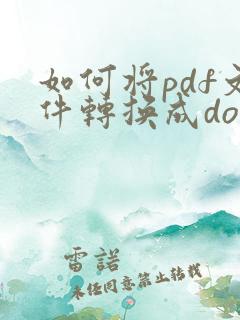 如何将pdf文
件轉换成do
雷諾
未经同意禁止转载